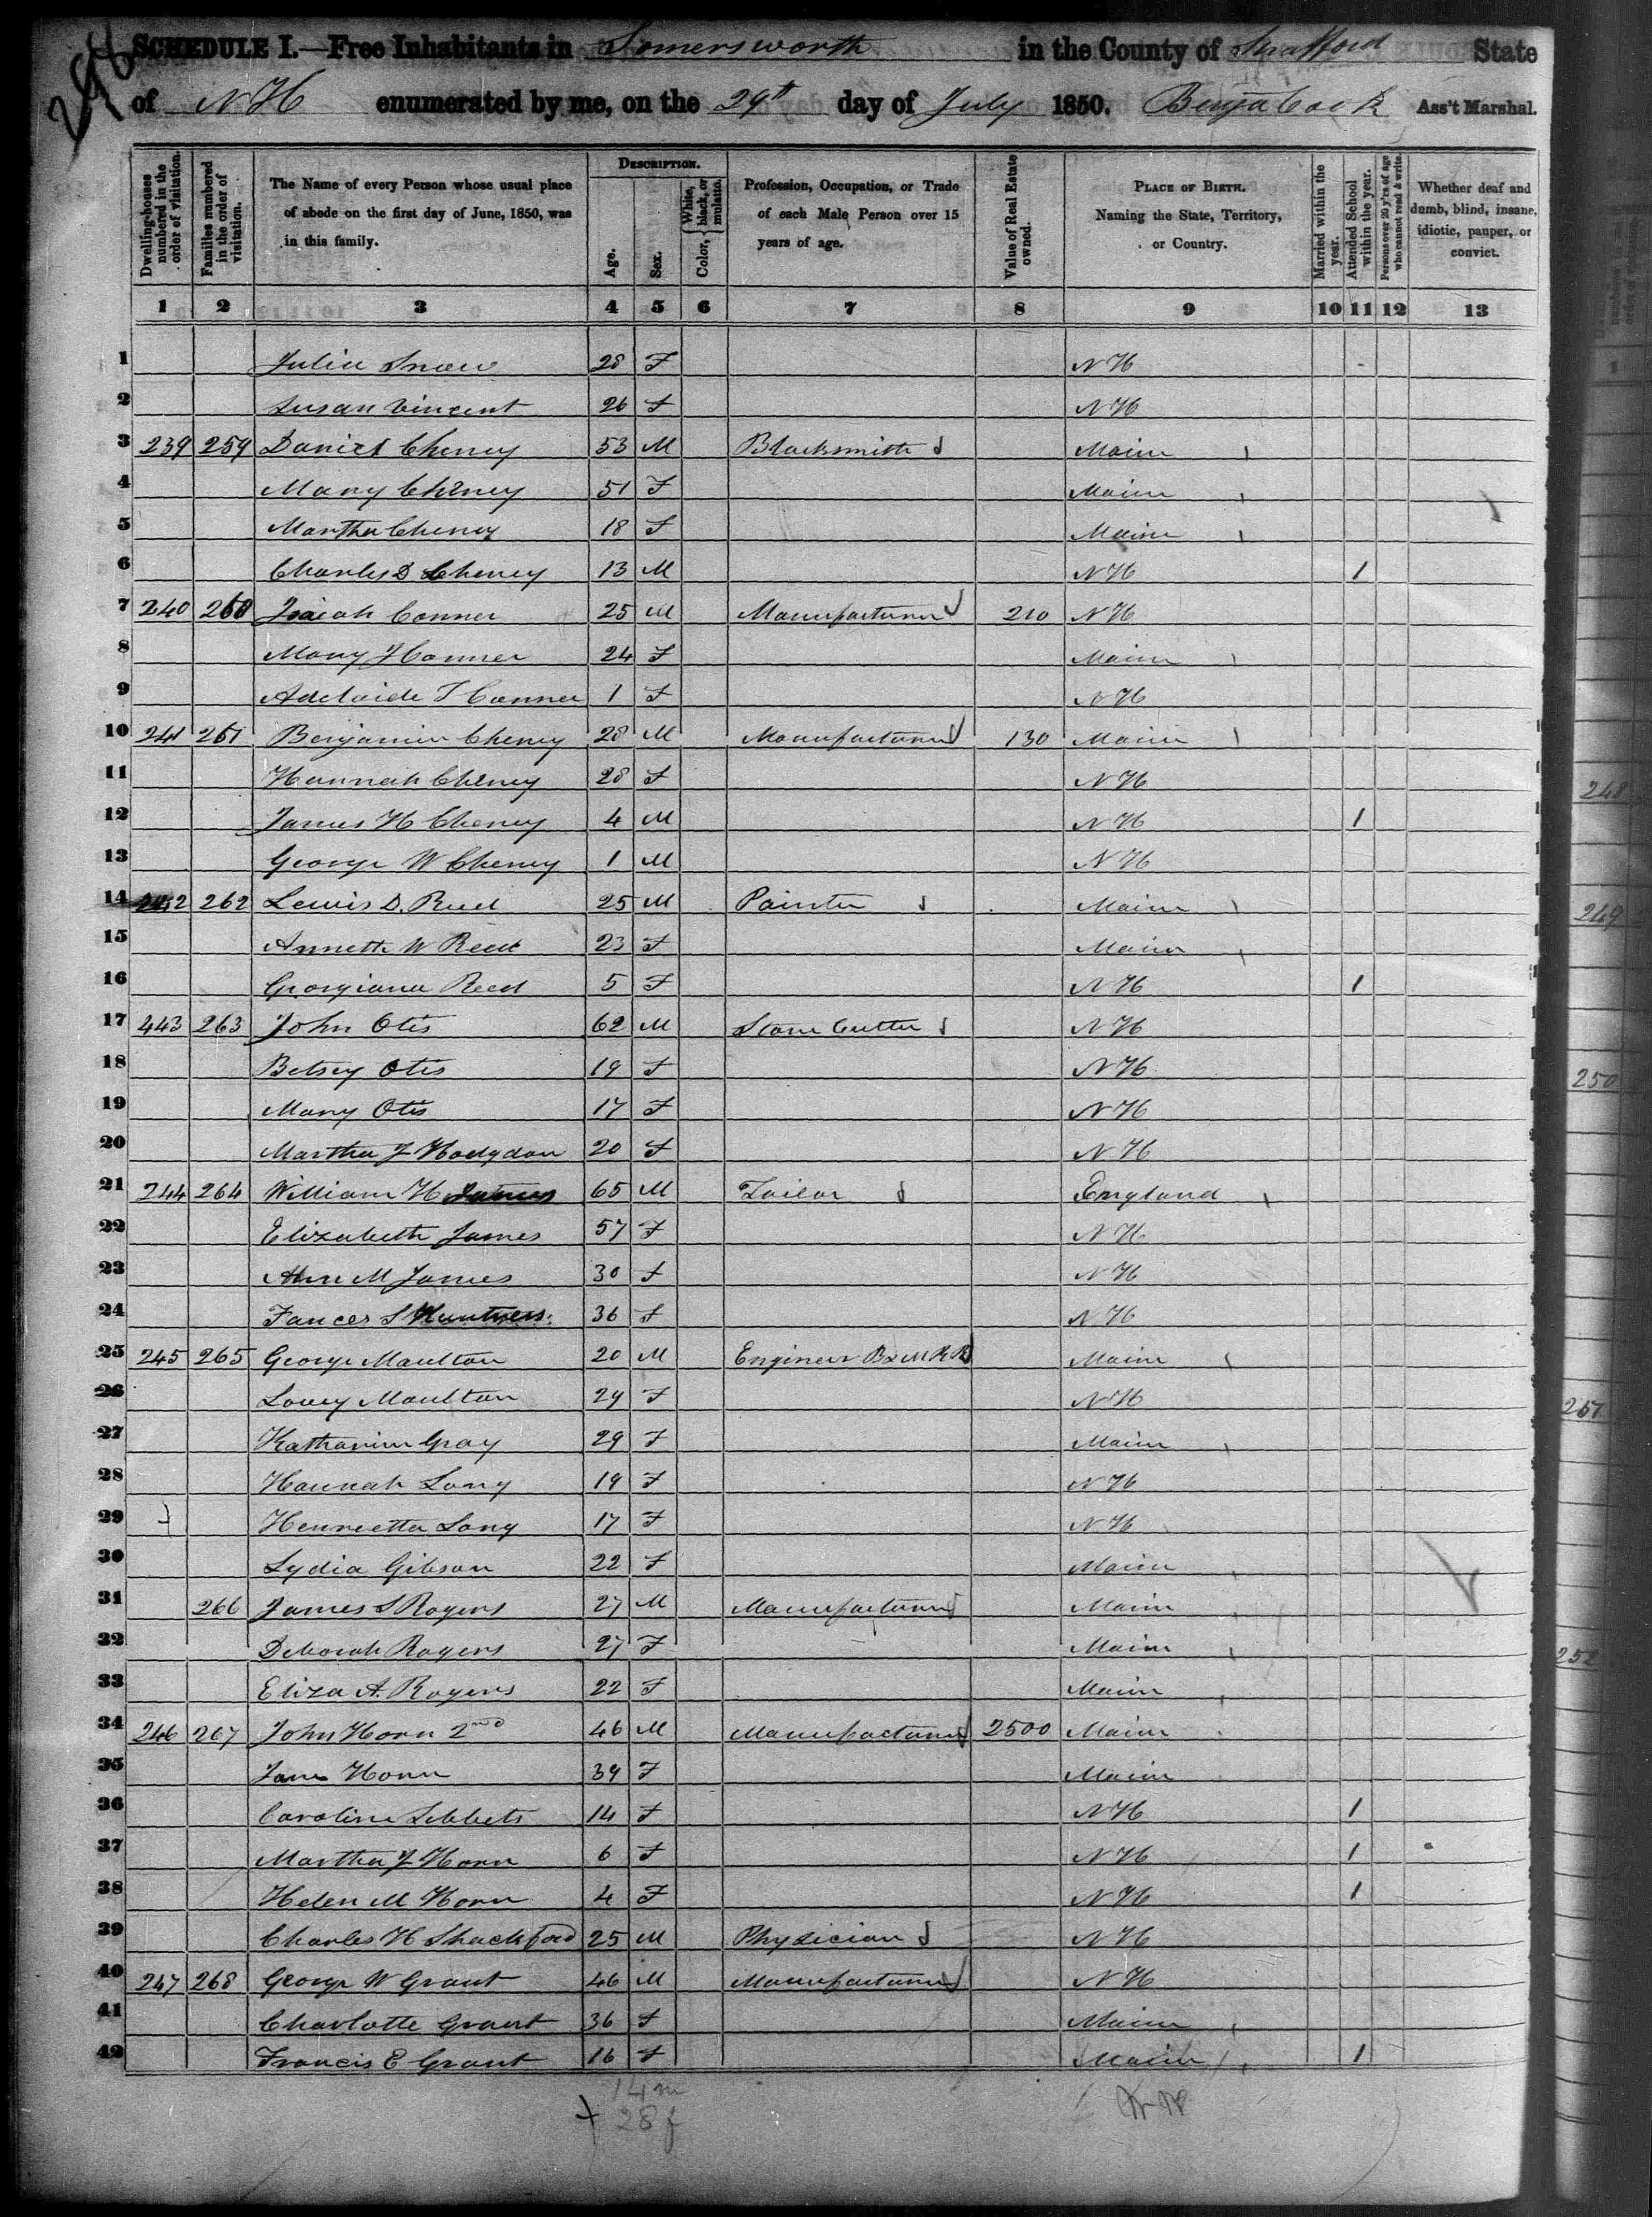 296
SCHEDULE I.—Free Inhabitants in Somersworth in the County of Strafford State
of NH enumerated by me, on the 29th day of July 1850. Benja Cook Ass't Marshal.
Dwelling-houses numbered in the order of visitation.
Families numbered in the order of visitation.
The Name of every Person whose usual place of abode on the first day of June, 1850, was in this family.
DESCRIPTION.
Age.
Sex.
Color, { White, black, or mulatto.
Profession, Occupation, or Trade of each Male Person over 15 years of age.
Value of Real Estate owned.
PLACE OF BIRTH. Naming the State, Territory, or Country.
Married within the year.
Attended School within the year.
Persons over 20 y'rs of age who cannot read & write.
Whether deaf and dumb, blind, insane, idiotic, pauper, or convict.
1 2 3 4 5 6 7 8 9 10 11 12 13
1 Julia Snow 28 F NH
2 Susan Vincent 26 F NH
3 239 259 Daniel Cheney 53 M Blacksmith Maine
4 Mary Cheney 51 F Maine
5 Martha Cheney 18 F Maine
6 Charles D Cheney 13 M NH 1
7 240 260 Isaiah Conner 25 M Manufacturer 210 NH
8 Mary J Conner 24 F Maine
9 Adelaide T Conner 1 F NH
10 241 261 Benjamin Cheney 28 M Manufacturer 130 Maine
11 Hannah Cheney 28 F NH
12 James H Cheney 4 M NH 1
13 George W Cheney 1 M NH
14 242 262 Lewis D. Reed 25 M Painter Maine
15 Annett W Reed 23 F Maine
16 Georgiana Reed 5 F NH 1
17 443 263 John Otis 62 M Stone Cutter NH
18 Betsey Otis 19 F NH
19 Mary Otis 17 F NH
20 Martha J Hodgdon 20 F NH
21 244 264 William H James 65 M Tailor England
22 Elizabeth James 57 F NH
23 Ann M James 30 F NH
24 Fances S Huntress 36 F NH
25 245 265 George Moulton 20 M Engineer B & M R R Maine
26 Lovey Moulton 29 F NH
27 Katharine Gray 29 F Maine
28 Hannah Long 19 F NH
29 Henrietta Long 17 F NH
30 Lydia Gibson 22 F Maine
31 266 James S Rogers 27 M Manufacturer Maine
32 Deborah Rogers 27 F Maine
33 Eliza A. Rogers 22 F Maine
34 246 267 John Horn 2nd 46 M Manufacturer 2500 Maine
35 Jane Horn 39 F Maine
36 Caroline Tebbets 14 F NH 1
37 Martha J Horn 6 F NH 1
38 Helen M Horn 4 F NH 1
39 Charles H Shackford 25 M Physician NH
40 247 268 George W Grant 46 M Manufacturer NH
41 Charlotte Grant 36 F Maine
42 Francis E Grant 16 F Maine 1
14 m
28 f
248
249
250
251
252